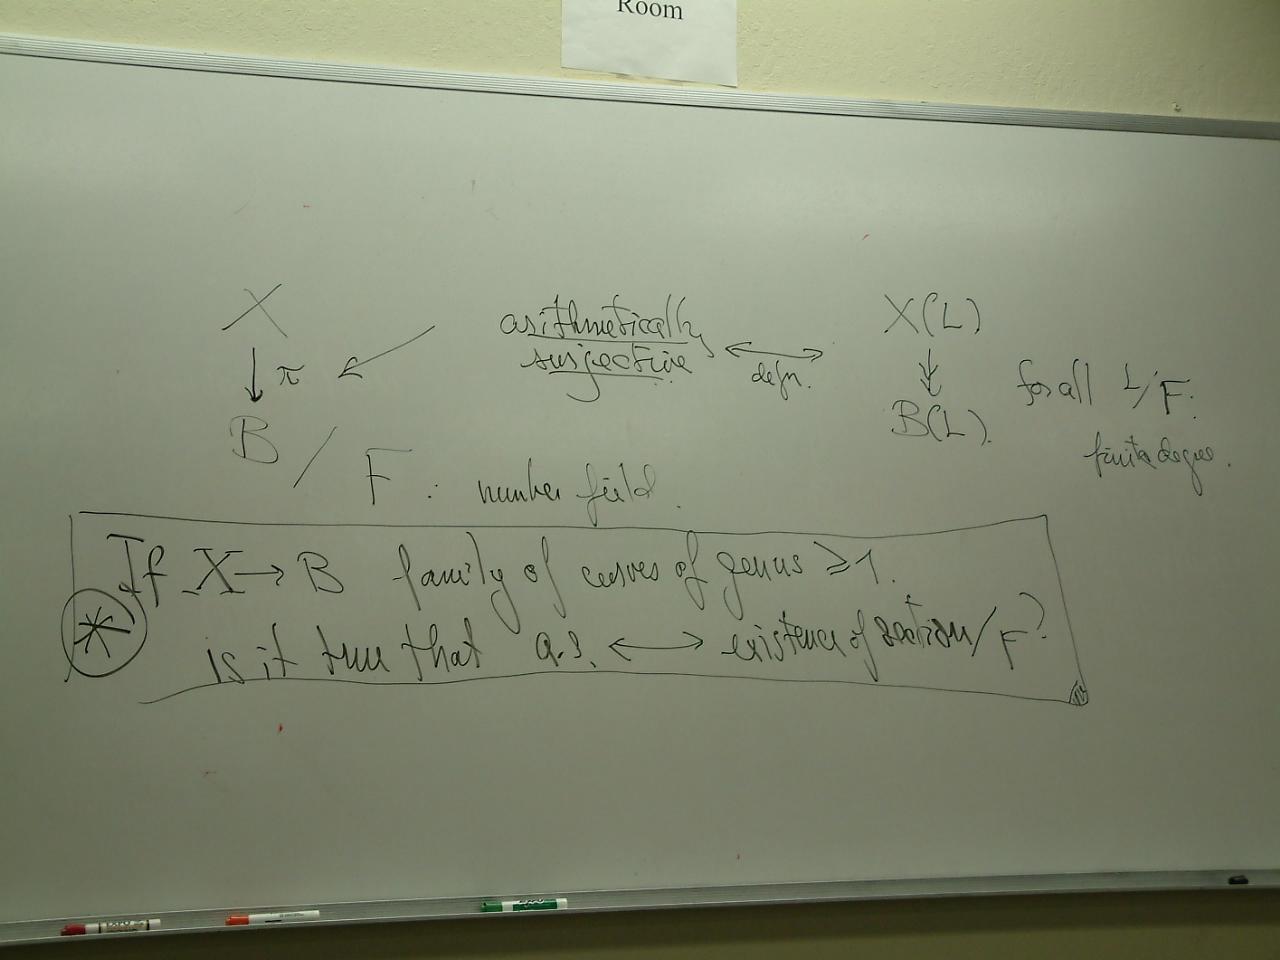 Room
X
↓ π
B / F : number field.
arithmetically
surjective
↔
defn.
X(L)
↡
B(L).
for all L/F:
finite degree.
If X → B family of curves of genus ≥ 1.
* is it true that a.s. ↔ existence of section / F?
EXPO